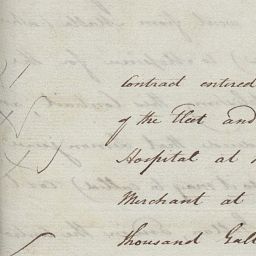 Contract entered
of the Fleet and
Hospital at
Merchant at
thousand Gall